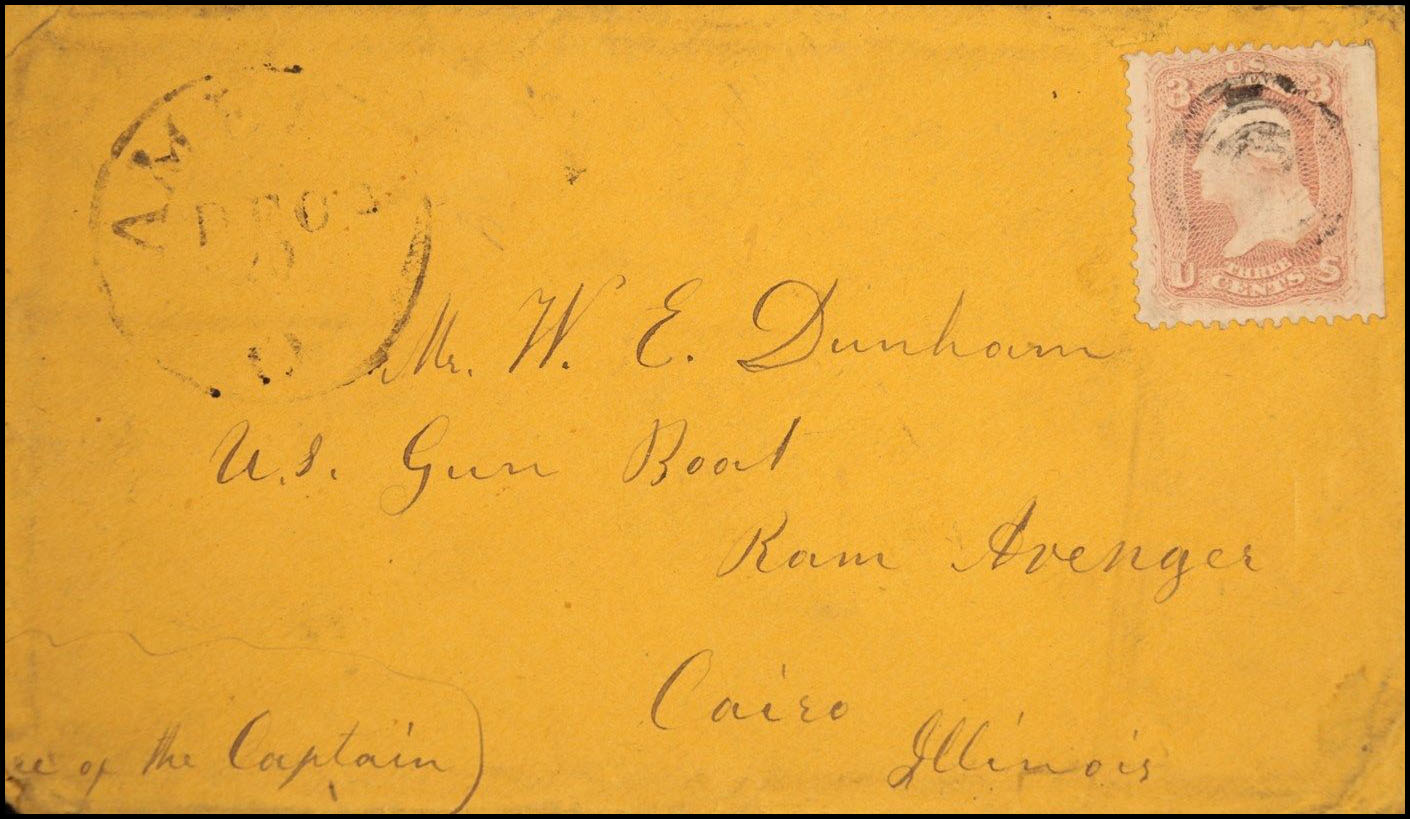 DEC
O
3 U.S. 3
U THREE S
CENTS
Mr. W. E. Dunham
U.S. Gun Boat
Ram Avenger
Cairo
Illinois
of the Captain)